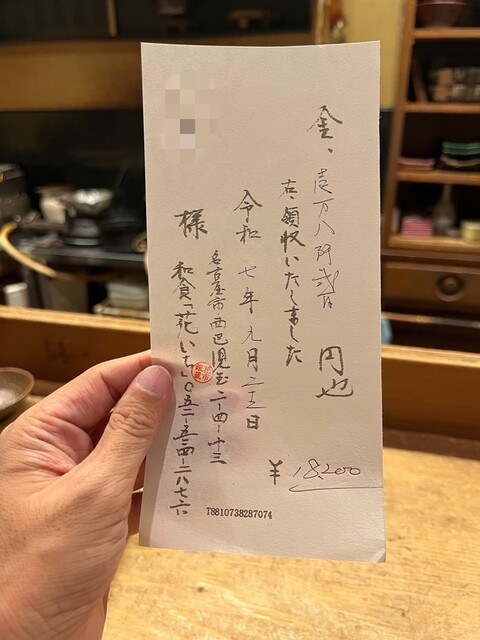 金、壱万八阡弐百円也
右、領収いたしました
令和七年九月二十三日
様
名古屋市西区児玉二-四-十三
和食「花いち」〇五二-五二四-二八七六
¥18200
T8810738287074